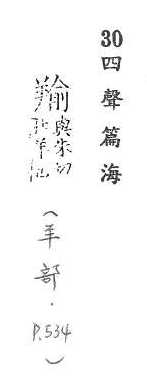 30 四聲篇海
羭 與朱切
羊也
（羊部．P.534）